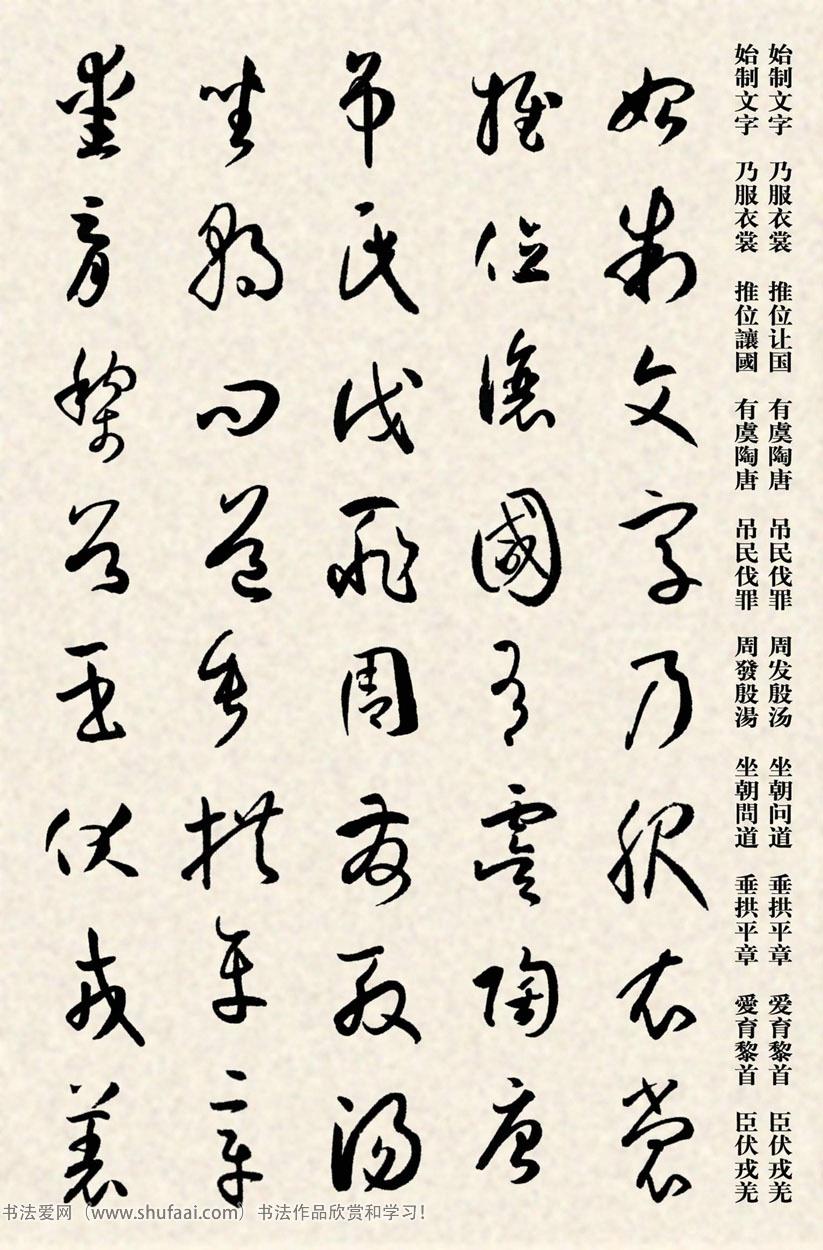 始制文字 乃服衣裳 推位让国 有虞陶唐 吊民伐罪 周发殷汤 坐朝问道 垂拱平章 爱育黎首 臣伏戎羌
始制文字 乃服衣裳 推位讓國 有虞陶唐 吊民伐罪 周發殷湯 坐朝問道 垂拱平章 愛育黎首 臣伏戎羌
始制文字乃服衣裳
推位讓國有虞陶唐
吊民伐罪周發殷湯
坐朝問道垂拱平章
愛育黎首臣伏戎羌
书法爱网（www.shufaai.com）书法作品欣赏和学习！